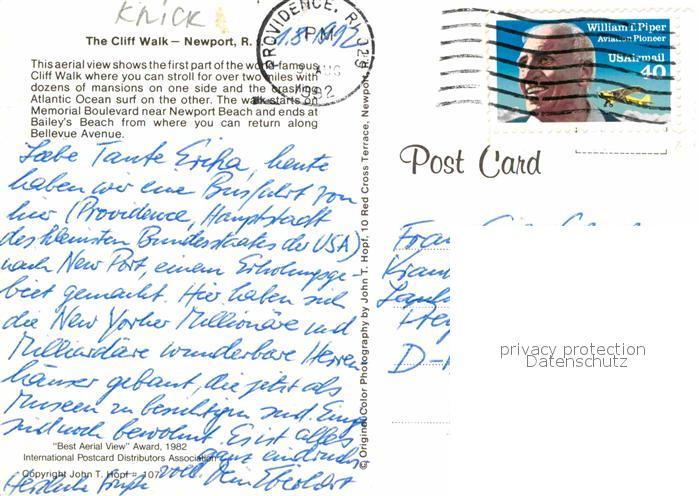 KNICK
The Cliff Walk — Newport, R. I.
This aerial view shows the first part of the world-famous
Cliff Walk where you can stroll for over two miles with
dozens of mansions on one side and the crashing
Atlantic Ocean surf on the other. The walk starts on
Memorial Boulevard near Newport Beach and ends at
Bailey's Beach from where you can return along
Bellevue Avenue.
PROVIDENCE, RI 029
PM
AUG
1992
William T. Piper
Aviation Pioneer
USAirmail
40
Post Card
Liebe Tante Erika, heute
haben wir eine Busfahrt von
hier (Providence, Hauptstadt
des kleinsten Bundesstaates der USA)
nach New Port, einem Erholungsge-
biet gemacht. Hier haben sich
die New Yorker Millionäre und
Milliardäre wunderbare Herren
häuser gebaut, die jetzt als
Museen zu besichtigen sind. Einige
sind noch bewohnt. Es ist alles
ganz eindrucks
voll. Dein Eberhart
Herzliche Grüße
"Best Aerial View" Award, 1982
International Postcard Distributors Association
Copyright John T. Hopf # 107
© Original Color Photography by John T. Hopf, 10 Red Cross Terrace, Newport,
Frau
D-
privacy protection
Datenschutz